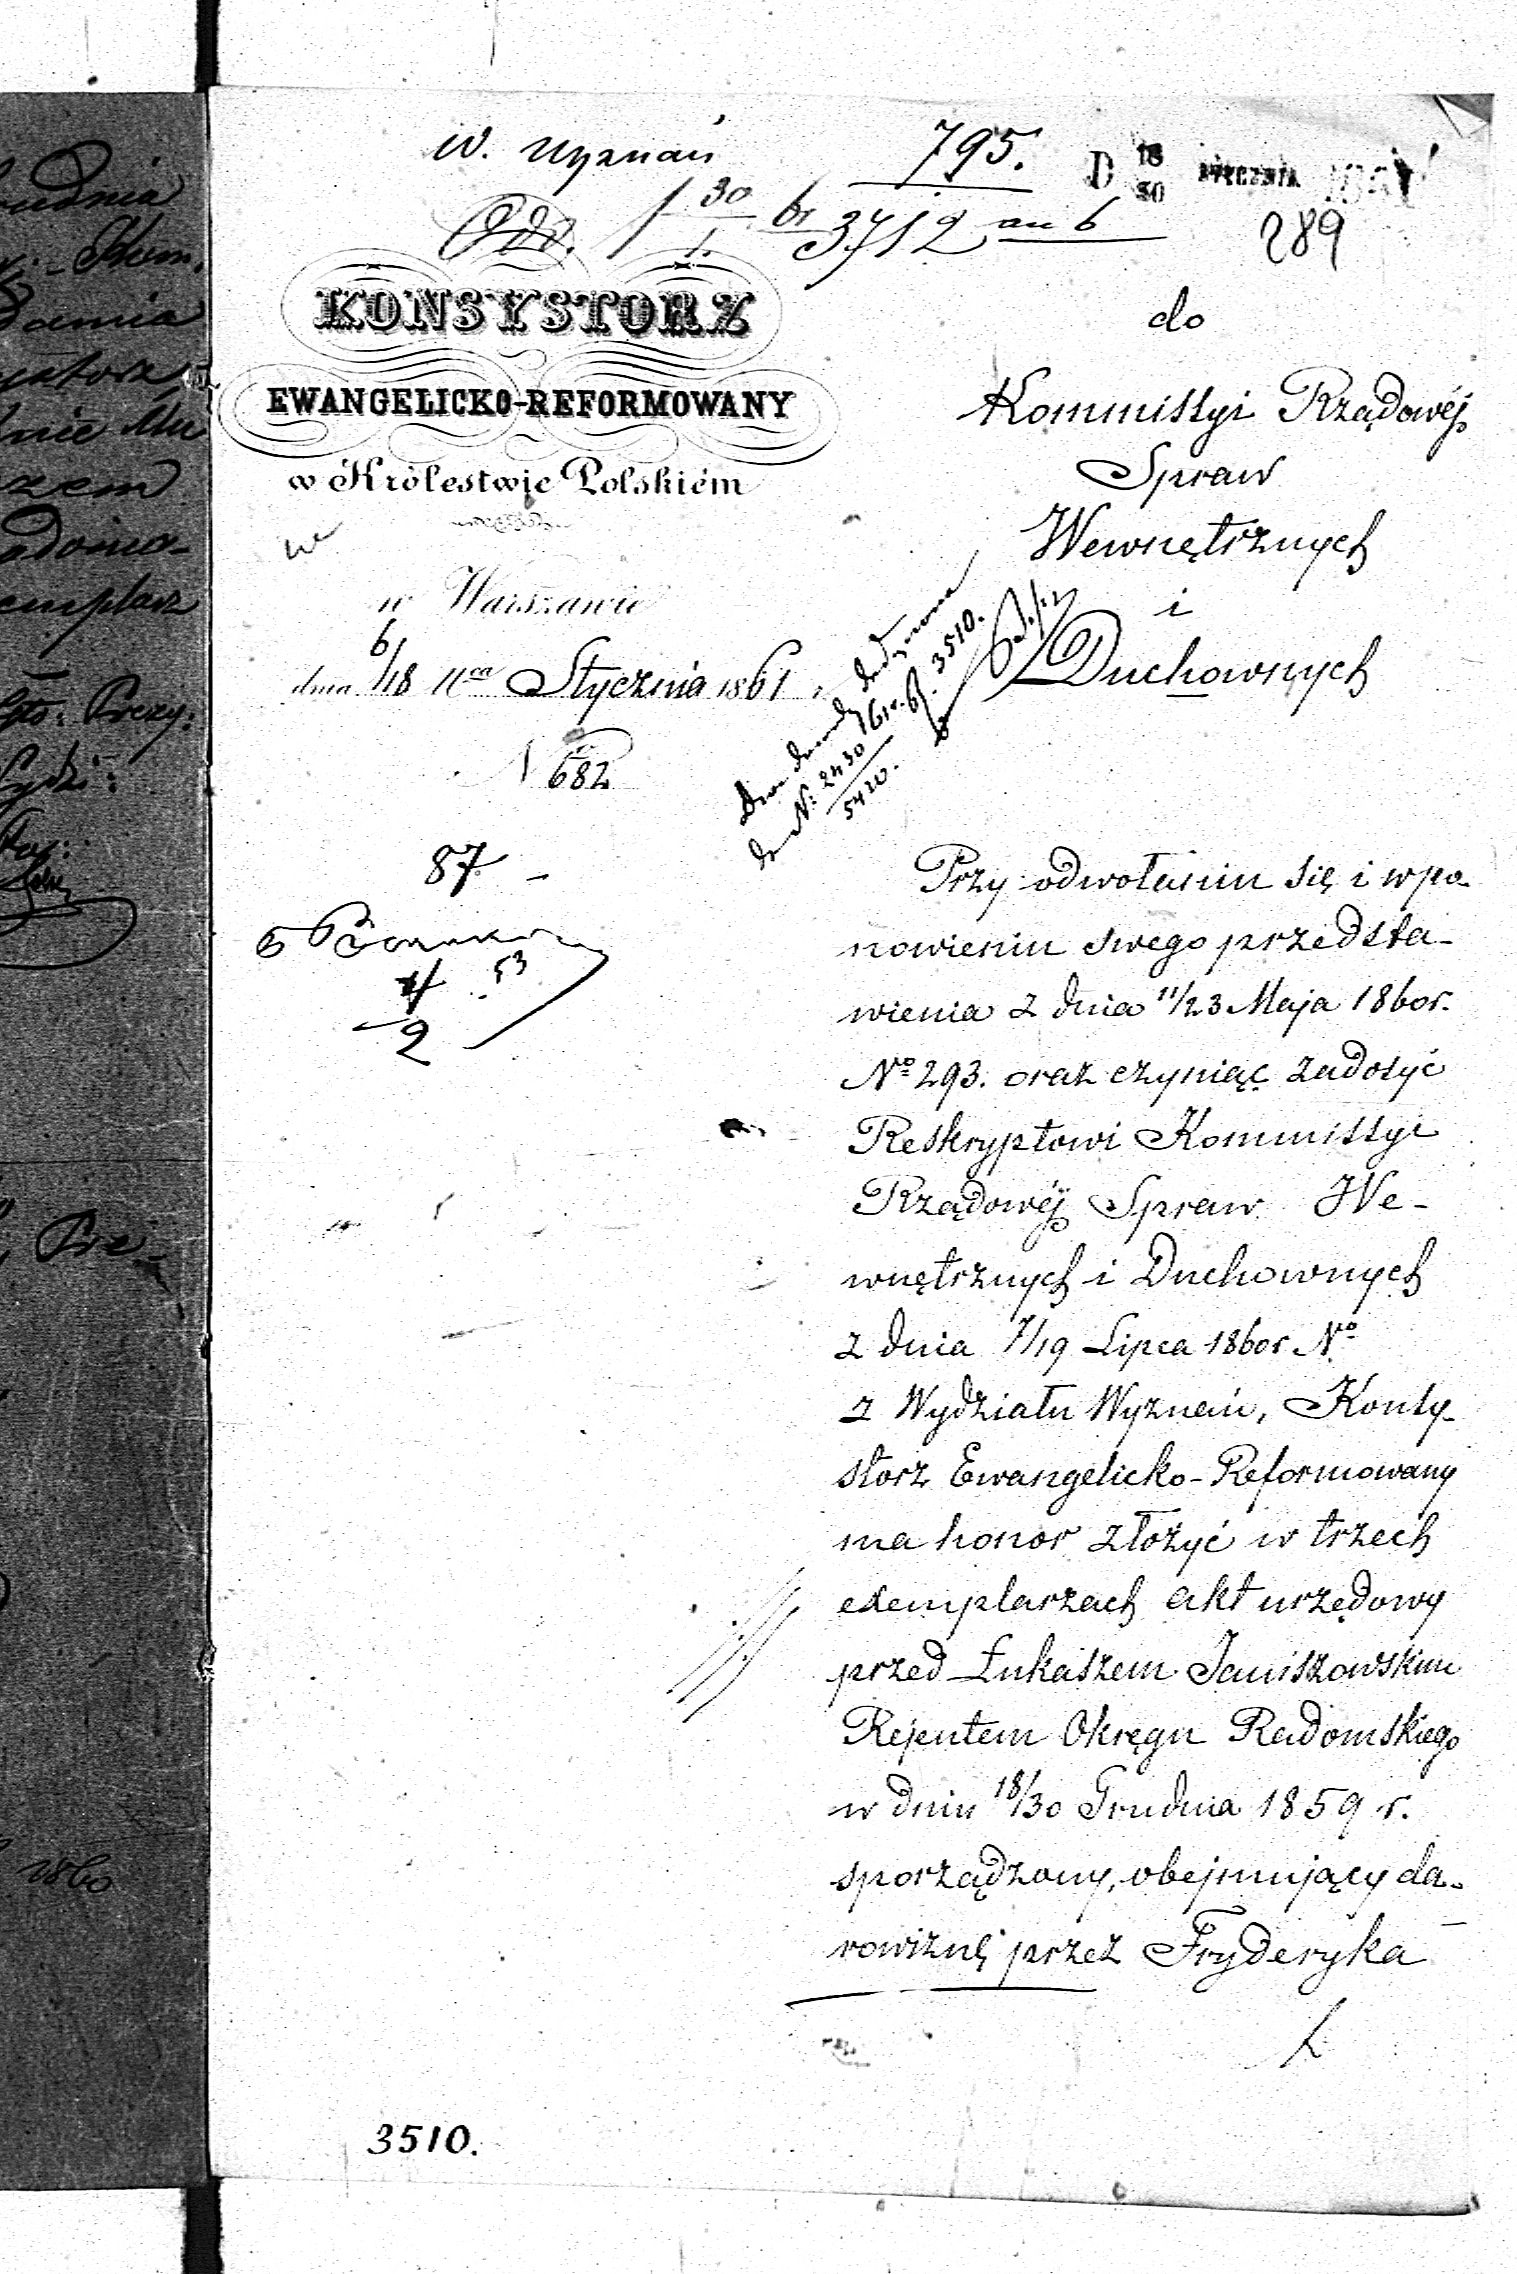 W. Wyznań
795.
D 18/30 STYCZNIA
30/1. 61
3712 an 6
289
KONSYSTORZ
EWANGELICKO-REFORMOWANY
w Królestwie Polskiém
w Warszawie
dnia 6/18 Stycznia 1861
N 682
do
Kommissyi Rządowéj
Spraw
Wewnętrznych
i
Duchownych
do N: 2430/5420. 61. 3510.
87
53
2
Przy odwołaniu się i wpo-
nowieniu swego przedsta-
wienia z dnia 11/23 Maja 1860 r.
No 293. oraz czyniąc zadosyć
Reskryptowi Kommissyi
Rządowéj Spraw We-
wnętrznych i Duchownych
z dnia 7/19 Lipca 1860 r. No
z Wydziału Wyznań, Konsy-
storz Ewangelicko-Reformowany
ma honor złożyć w trzech
exemplarzach akt urzędowy
przed Łukaszem Janiszowskim
Rejentem Okręgu Radomskiego
w dniu 18/30 Grudnia 1859 r.
sporządzony, obejmujący da-
rowiznę przez Fryderyka
3510.
udnia
Kom.
dania
zem
adomo-
emplarz
Prezy:
1860